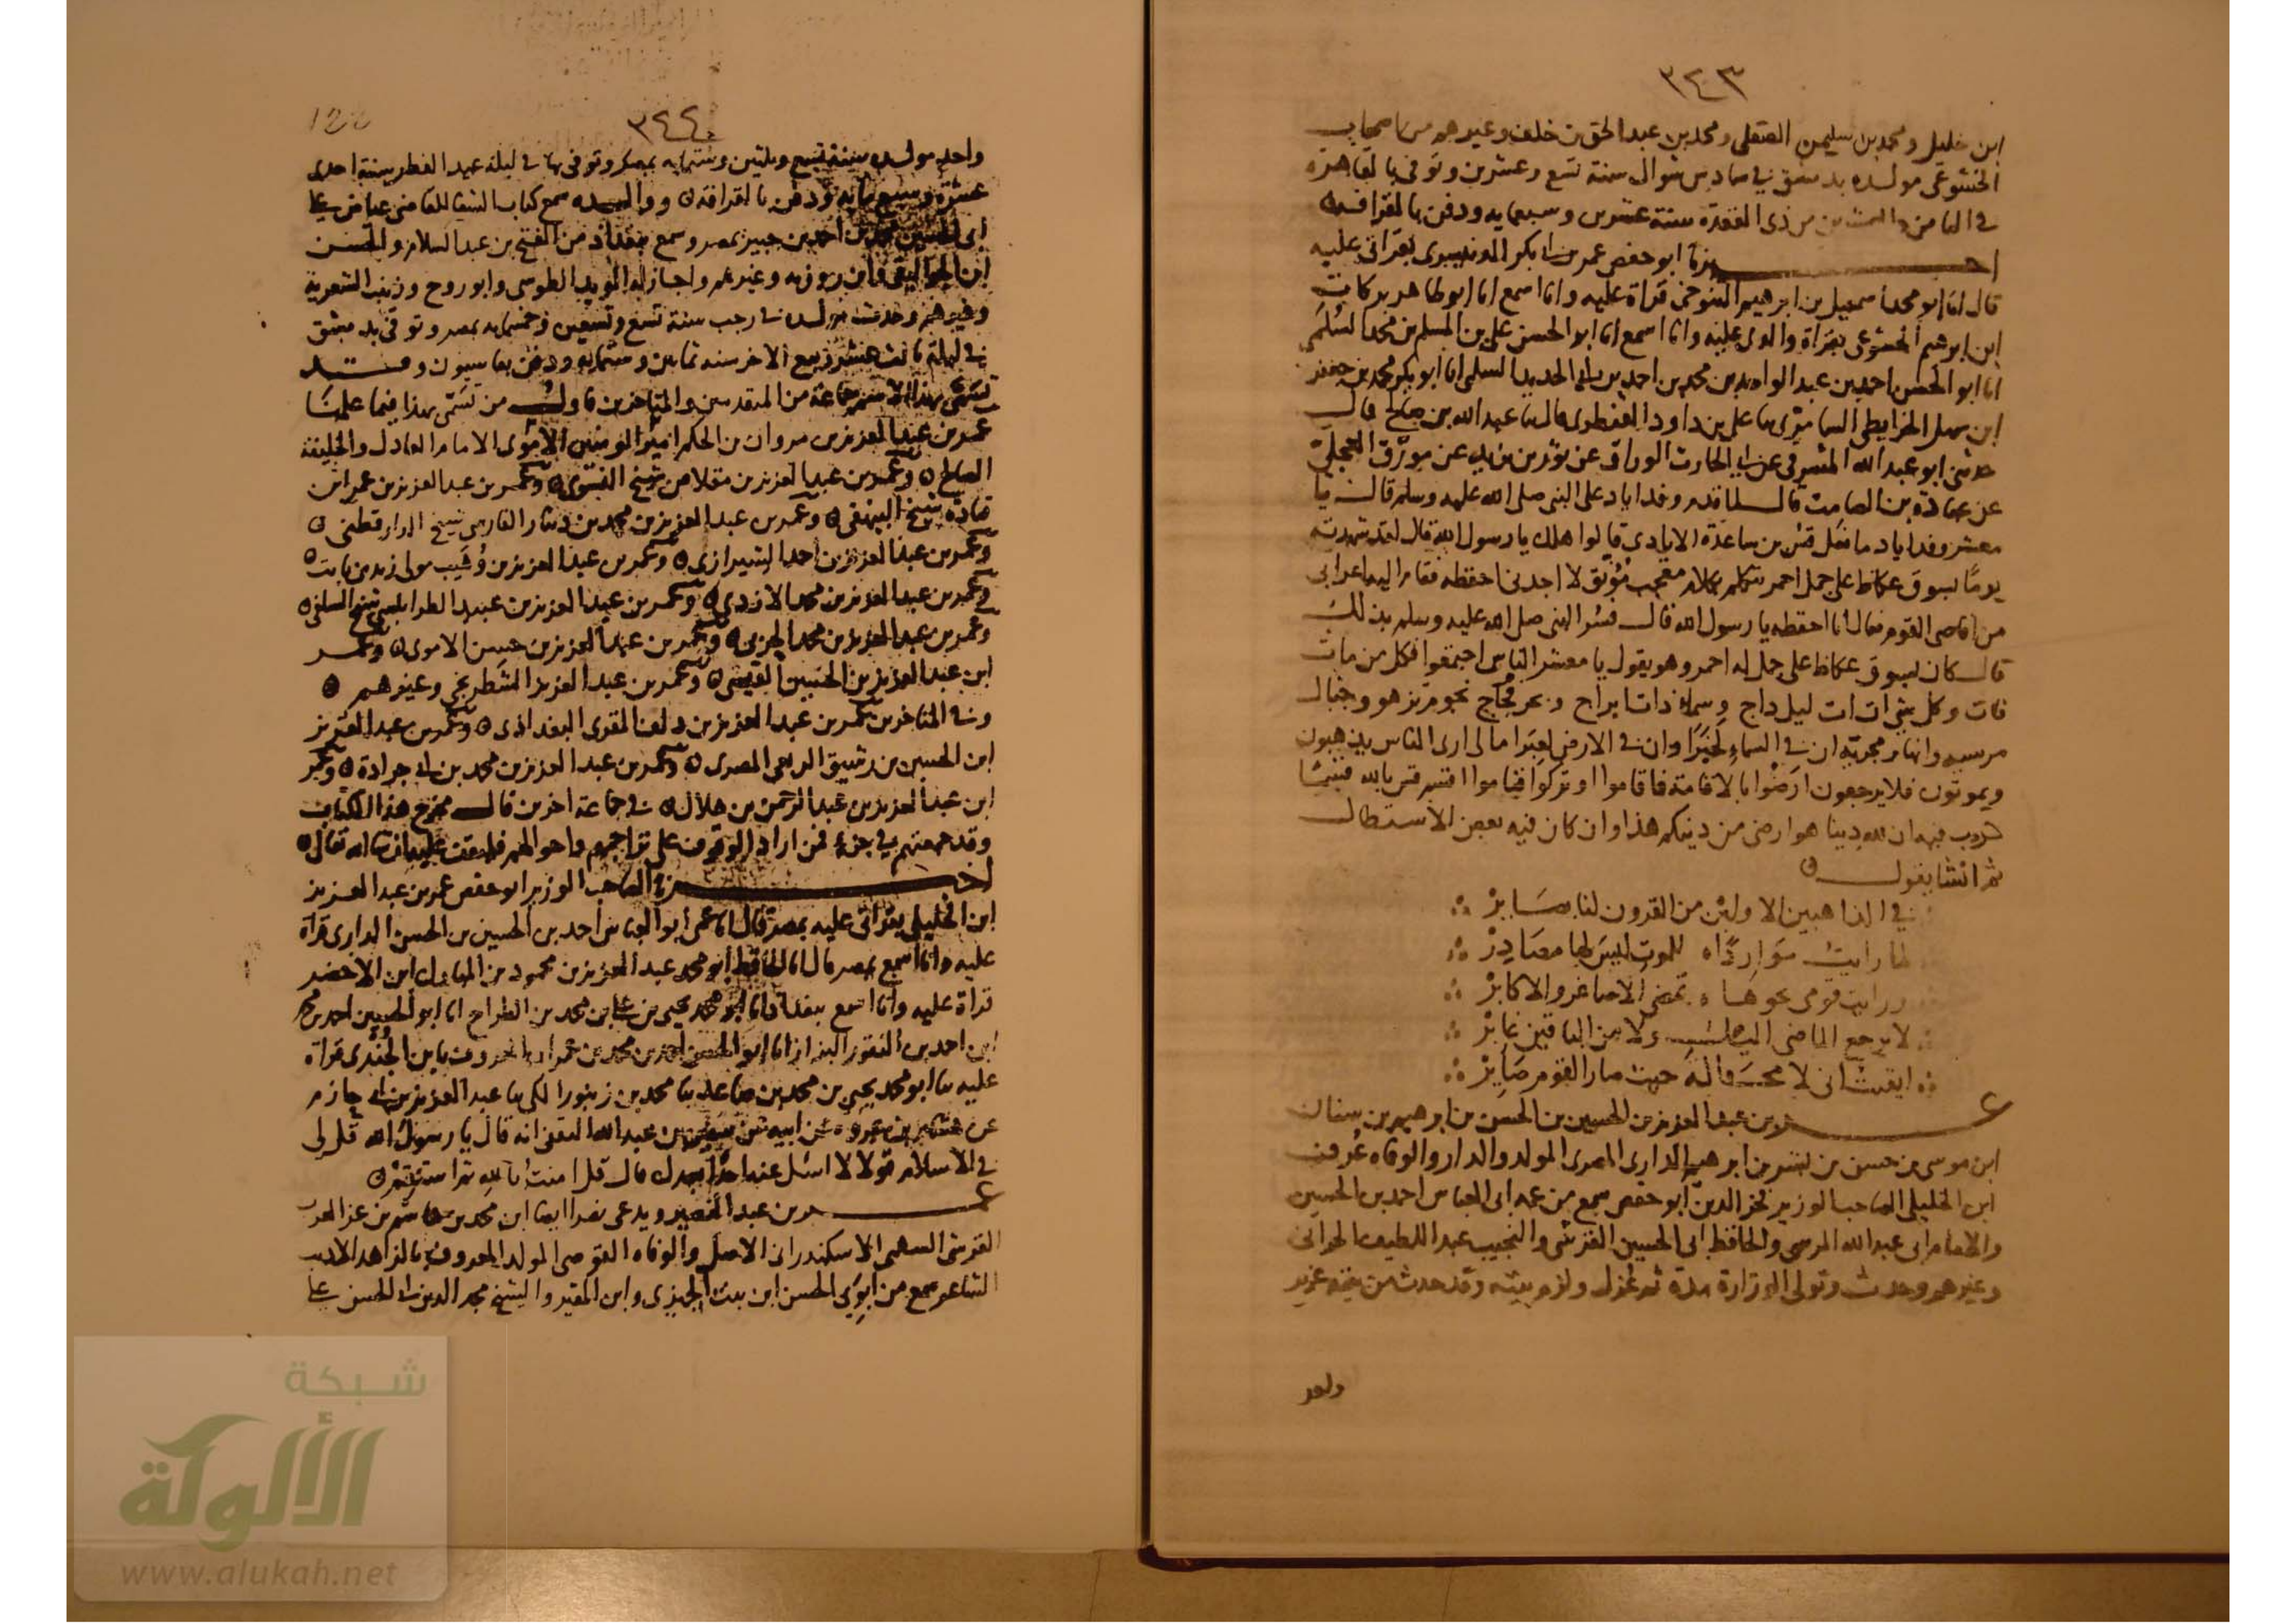 ٣٤٣
ابن خليل ومحمد بن سليمن الصقلى ومحمد بن عبد الحق بن خلف وغيرهم من اصحاب
الخشوعى مولده بدمشق فى سادس شوال سنة تسع وعشرين وتوفى بالقاهرة
فى الثامن من ذى القعدة سنة عشرين وسبعمايه ودفن بالقرافه
اخبرنا ابو حفص عمر بن ابى بكر بقراتى عليه
قال انا ابو محمد اسمعيل بن ابرهيم التنوخى قراة عليه وانا اسمع انا ابو طاهر بركات
ابن ابرهيم الخشوعى بقراة والدى عليه وانا اسمع انا ابو الحسن على بن المسلم بن محمد السلمى
انا ابو الحسن احمد بن عبد الواحد بن محمد بن احمد بن ابى الحديد السلمى انا ابو بكر محمد بن جعفر
ابن سهل الخرايطى السامرى ثنا على بن داود القنطرى قال ثنا عبد الله بن صالح قال
حدثنى ابو عبد الله المشرقى عن ابى الحارث الوراق عن ثور بن يزيد عن مورق العجلى
عن عبادة بن الصامت قال لما قدم وفد اياد على النبى صلى الله عليه وسلم قال يا
معشر وفد اياد ما فعل قس بن ساعدة الايادى قالوا هلك يا رسول الله قال لقد شهدته
يوما بسوق عكاظ على جمل احمر يتكلم بكلام معجب مونق لا اجدنى احفظه فقام اليه اعرابى
من اقاصى القوم فقال انا احفظه يا رسول الله قال فسر النبى صلى الله عليه وسلم بذلك
قال كان بسوق عكاظ على جمل له احمر وهو يقول يا معشر الناس اجتمعوا فكل من مات
فات وكل شى ات ات ليل داج وسماء ذات ابراج وبحر عجاج نجوم تزهر وجبال
مرسيه وانهار مجريه ان فى السماء لخبرا وان فى الارض لعبرا مالى ارى الناس يذهبون
ويموتون فلا يرجعون ارضوا بالاقامة فاقاموا او تركوا فناموا اقسم قس بالله قسما
لا ريب فيه ان لله دينا هو ارضى من دينكم هذا وان كان فيه بعض الاستطال
ثم انشا يقول
فى الذاهبين الاولين من القرون لنا بصاير
لما رايت مواردا للموت ليس لها مصادر
ورايت قومى نحوها تمضى الاصاغر والاكابر
لا يرجع الماضى الى ولا من الباقين غابر
ايقنت انى لا محالة حيث صار القوم صاير
عمر بن عبد العزيز بن الحسين بن الحسن بن ابرهيم بن سنان
ابن موسى بن حسن بن بشر بن ابرهيم الدارى المصرى المولد والدار والوفاه عرف
ابن الخليلى الصاحب الوزير فخر الدين ابو حفص سمع من عمه ابى العباس احمد بن الحسين
والامام ابى عبد الله المرسى والحافظ ابى الحسين القرشى والنجيب عبد اللطيف الحرانى
وغيرهم وحدث وتولى الوزارة مدة ثم عزل ولزم بيته وقد حدث من بيته غير
واحد
٣٤٤
واحد مولده سنة تسع وثلثين وستمايه بمصر وتوفى بها فى ليلة عيد الفطر سنة احدى
عشرة وسبع مايه ودفن بالقرافة ووالده سمع كتاب الشفا للقاضى عياض على
ابى الحسين محمد بن احمد بن جبير بمصر وسمع ببغداد من الفتح بن عبد السلام والحسن
ابن الجواليقى وابن روزبه وغيرهم واجاز له المويد الطوسى وابو روح وزينب الشعرية
وغيرهم وحدث مولده فى رجب سنة تسع وتسعين وخمسمايه بمصر وتوفى بدمشق
فى ليلة ثالث عشر ربيع الاخر سنه ثمانين وستمايه ودفن بقاسيون وقد
تسمى بهذا الاسم جماعة من المتقدمين والمتاخرين فاول من تسمى بهذا فيما علمنا
عمر بن عبد العزيز بن مروان بن الحكم امير المومنين الاموى الامام العادل والخليفة
الصالح وعمر بن عبد العزيز بن مقلاص شيخ النسوى وعمر بن عبد العزيز بن عمر ابن
قتادة شيخ البيهقى وعمر بن عبد العزيز بن محمد بن دينار الفارسى شيخ الدارقطنى
وعمر بن عبد العزيز بن احمد الشيرازى وعمر بن عبد العزيز بن وهيب مولى زيد بن ثابت
وعمر بن عبد العزيز بن محمد الازدى وعمر بن عبد العزيز بن عبيد الطرابلسى شيخ السلفى
وعمر بن عبد العزيز بن محمد وعمر بن عبد العزيز بن حسن الاموى وعمر
ابن عبد العزيز بن الحسين وعمر بن عبد العزيز الشطرنجى وغيرهم
وفى المتاخرين عمر بن عبد العزيز بن دلف المقرى البغداذى وعمر بن عبد العزيز
ابن الحسين بن رشيق الربعى المصرى وعمر بن عبد العزيز بن محمد بن ابى جرادة وعمر
ابن عبد العزيز بن عبد الرحمن بن هلال فى جماعة اخرين قال مخرج هذا الكتاب
وقد جمعتهم فى جزء فمن اراد الوقوف على تراجمهم واحوالهم فليقف عليه ان شا الله تعالى
اخبرنا الصاحب الوزير ابو حفص عمر بن عبد العزيز
ابن الخليلى بقراتى عليه بمصر قال انا عمى ابو العباس احمد بن الحسين بن الحسن الدارى قراة
عليه وانا اسمع بمصر قال انا الحافظ ابو محمد عبد العزيز بن محمود بن المبارك ابن الاخضر
قراة عليه وانا اسمع ببغداد انا ابو محمد يحيى بن على بن محمد بن الطراح انا ابو الحسين احمد بن محمد
ابن احمد بن النقور البزاز انا ابو الحسن احمد بن محمد بن عمران المعروف بابن الجندى قراة
عليه ثنا ابو محمد يحيى بن محمد بن صاعد ثنا محمد بن زنبور المكى ثنا عبد العزيز بن ابى حازم
عن هشام بن عروة عن ابيه عن سفين بن عبد الله الثقفى انه قال يا رسول الله قل لى
فى الاسلام قولا لا اسئل عنه احدا بعدك قال قل امنت بالله ثم استقم
عمر بن عبد النصير ويدعى نصرا ايضا ابن محمد بن هاشم بن عز العرب
القرشى السهمى الاسكندرانى الاصل والوفاه القوصى المولد المعروف بالزاهد الاديب
الشاعر سمع من ابوى الحسن ابن بنت الجميزى وابن المقير والشيخ مجد الدين ابى الحسن على
شبكة
الألوكة
www.alukah.net